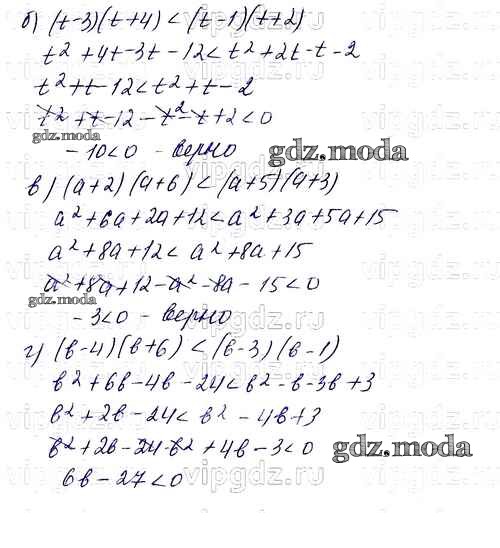 б) (t-3)(t+4) < (t-1)(t+2)
t² +4t-3t-12 < t²+2t-t-2
t²+t-12 < t²+t-2
t²+t-12-t²-t+2<0
gdz.moda
-10<0 - верно
gdz.moda
в) (a+2)(a+6) < (a+5)(a+3)
a²+6a+2a+12 < a²+3a+5a+15
a²+8a+12 < a²+8a+15
a²+8a+12-a²-8a-15<0
gdz.moda
-3<0 - верно
г) (b-4)(b+6) < (b-3)(b-1)
b²+6b-4b-24 < b²-b-3b+3
b²+2b-24 < b²-4b+3
b²+2b-24-b²+4b-3<0
gdz.moda
6b-27<0
vipgdz.ru